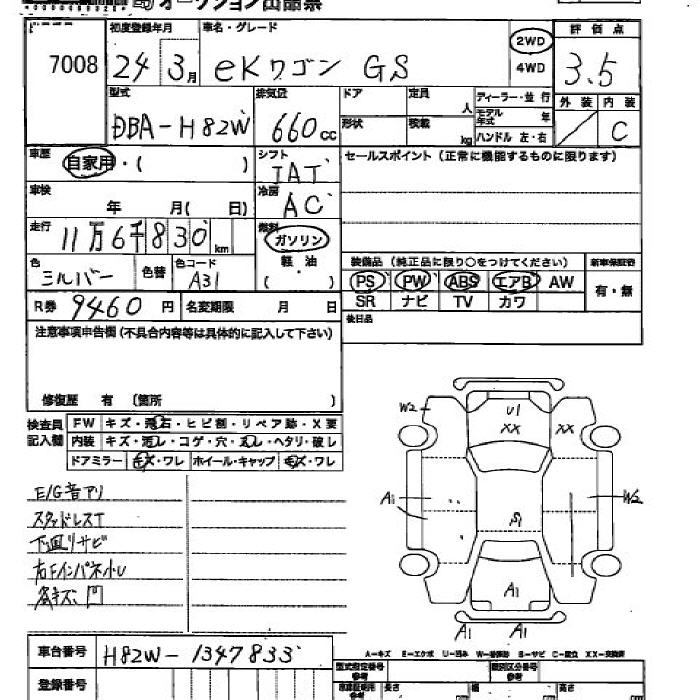 オークション出品票
初度登録年月 車名・グレード 評価点
7008 24 3月 eKワゴン GS 2WD 4WD 3.5
型式 排気量 ドア 定員 人 ディーラー・並行 外装 内装
DBA-H82W 660cc 形状 積載 kg モデル年式 年 ハンドル 左・右 C
車歴 自家用・( ) シフト IAT セールスポイント (正常に機能するものに限ります)
車検 年 月( 日) 冷房 AC
走行 11万6千830km 燃料 ガソリン 軽油 ( )
色 シルバー 色替 色コード A31
装備品 (純正品に限り○をつけてください) 新車保証書
PS PW ABS エアB AW 有・無
SR ナビ TV カワ
R券 9460円 名変期限 月 日
後日品
注意事項申告欄 (不具合内容等は具体的に記入して下さい)
修復歴 有 (箇所 )
検査員記入欄 FW キズ・飛石・ヒビ割・リペア跡・X要
内装 キズ・汚レ・コゲ・穴・スレ・ヘタリ・破レ
ドアミラー キズ・ワレ ホイール・キャップ キズ・ワレ
W2 U1 XX XX
A1 W2
S1
A1
A1 A1
E/G音アリ
スタッドレスT
下廻リサビ
右Fインパネ小U
各キズ、凹
A-キズ E-エクボ U-凹み W-補修跡 S-サビ C-腐食 XX-交換済
車台番号 H82W-1347833
型式指定番号 参考 類別区分番号 参考
登録番号
長さ 幅 高さ